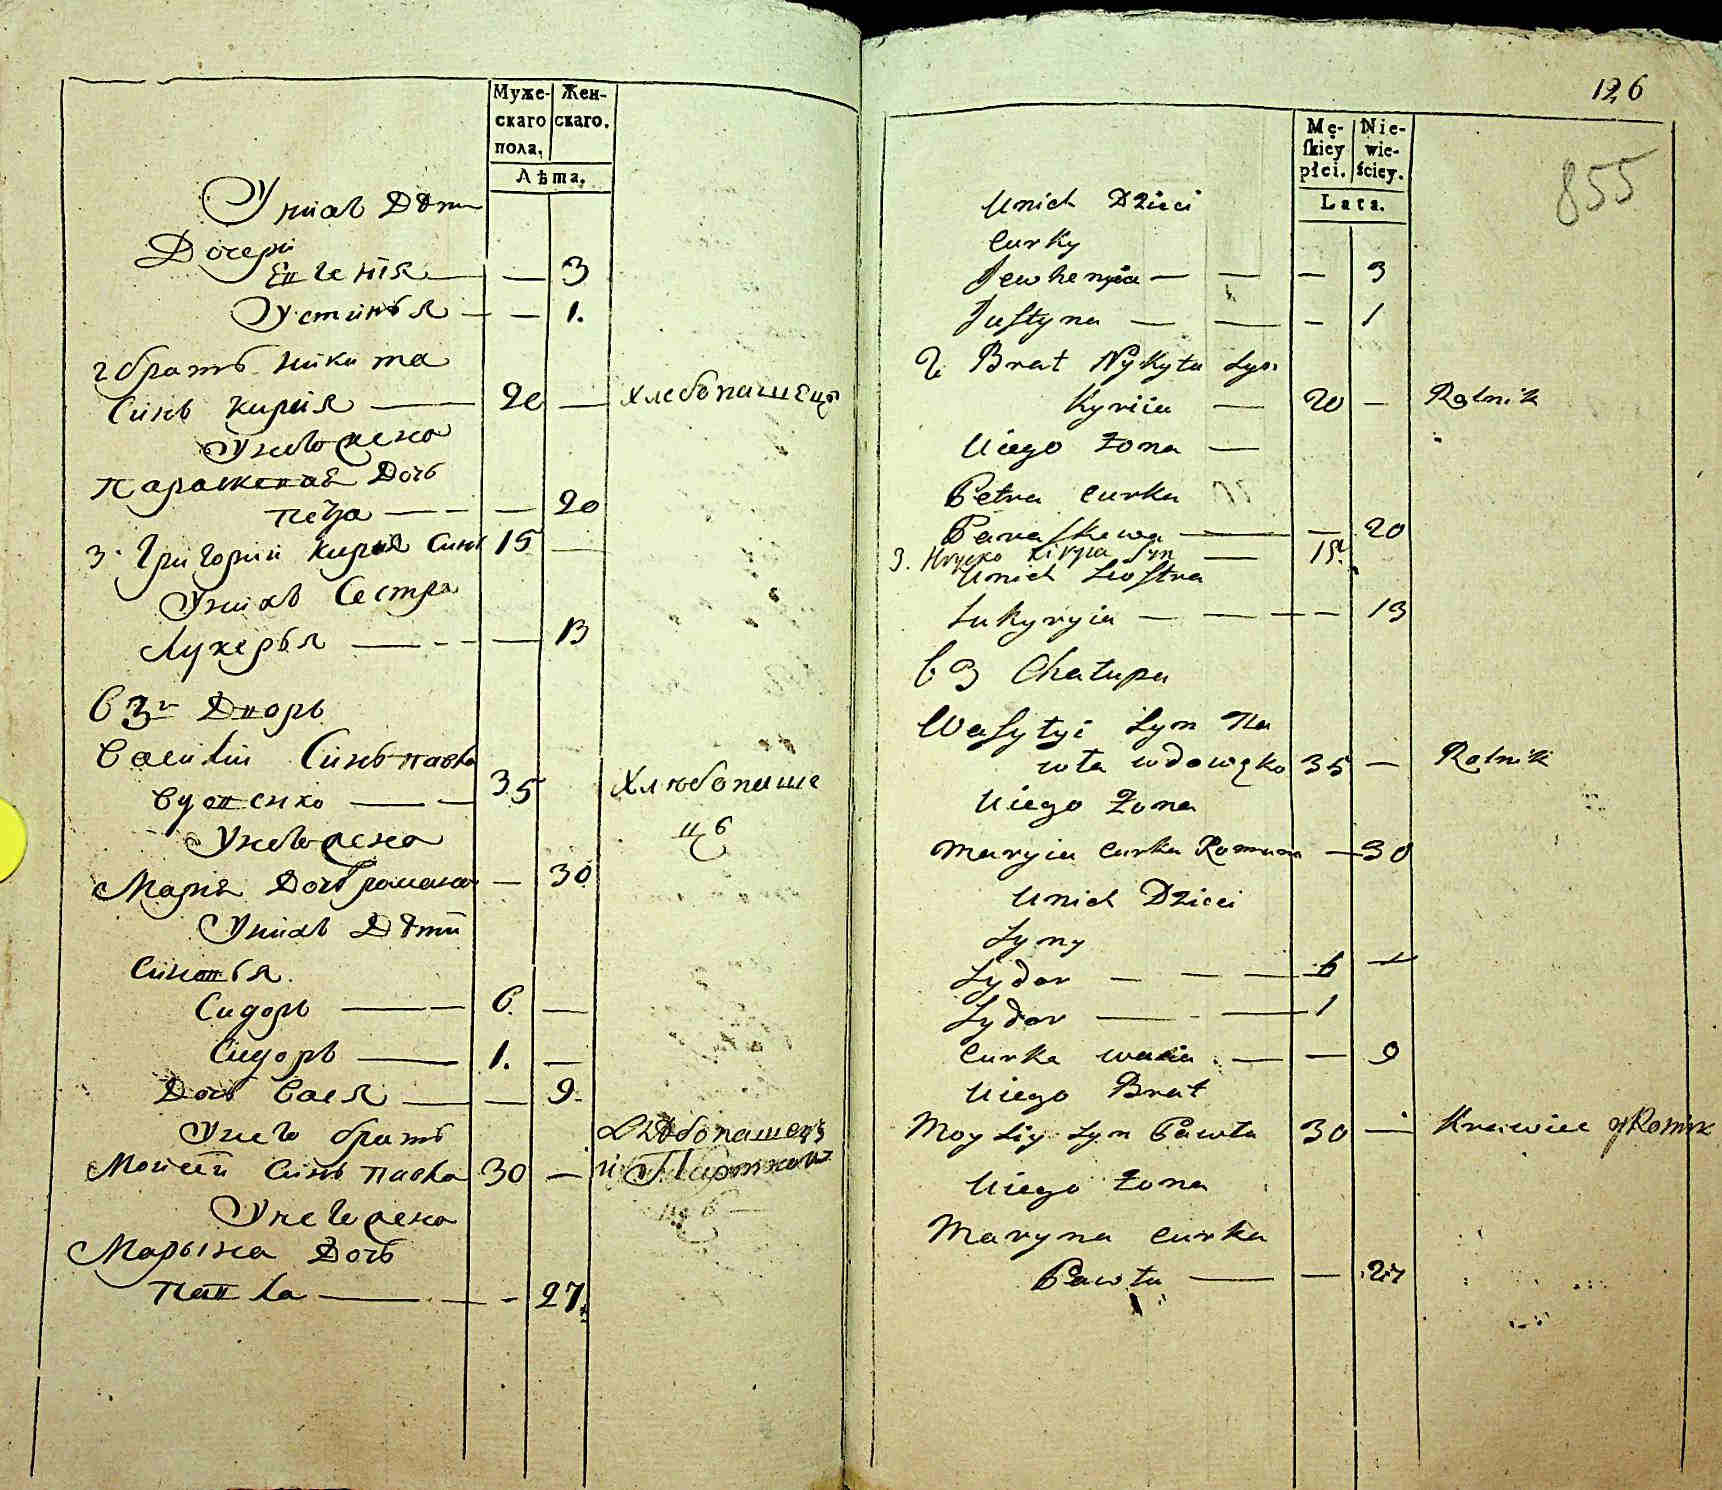 Муже-
скаго
пола.
Жен-
скаго.
Лѣта.
Унихъ Дѣти
Дочери
Евгенія — — 3
Устинья — — 1.
2 братъ никита
Синъ кирия — 20 — хлебопашецъ
Унего жена
параскевия Дочь
петра — — 20
3. Григорий кирия Синъ 15 —
Унихъ Сестра
Лукерья — — 13
в 3м Дворъ
Василий Синъ павла
вдовенко — 35 Хлюбопаше
цъ
Унего жена
Мария Дочь романа — 30
Унихъ Дѣти
Синовья.
Сидоръ — 6. —
Сидоръ — 1. —
Дочь Вася — — 9.
Унего братъ Хлѣбопашецъ
Моисей Синъ павла 30 — и Портной
Унего жена
Марына Дочь
павла — — 27.
126
855
Mę-
ſkiey
płci.
Nie-
wie-
ściey.
Lata.
Unich Dzieci
Curky
Jewhenyia — — — 3
Juſtyna — — — 1
2 Brat Nykyta Syn
Kyriia — 20 — Rolnik
Uiego Żona —
Petra Curka
Paraſkewa — — 20
3. Hrycko Kiryia Syn — 15.
Unich Sioſtra
Lukyryia — — — 13
b 3 Chałupa
Waſyłyi Syn Pa
wła wdowęko 35 — Rolnik
Uiego Żona
Maryia Curka Romana — 30
Unich Dzieci
Syny
Sydor — — — 6 —
Sydor — — 1
Curka wasia — — 9
Uiego Brat
Moyſiy Syn Pawła 30 — Krawiec y Rolnik
Uiego Żona
Maryna Curka
Pawła — — 27